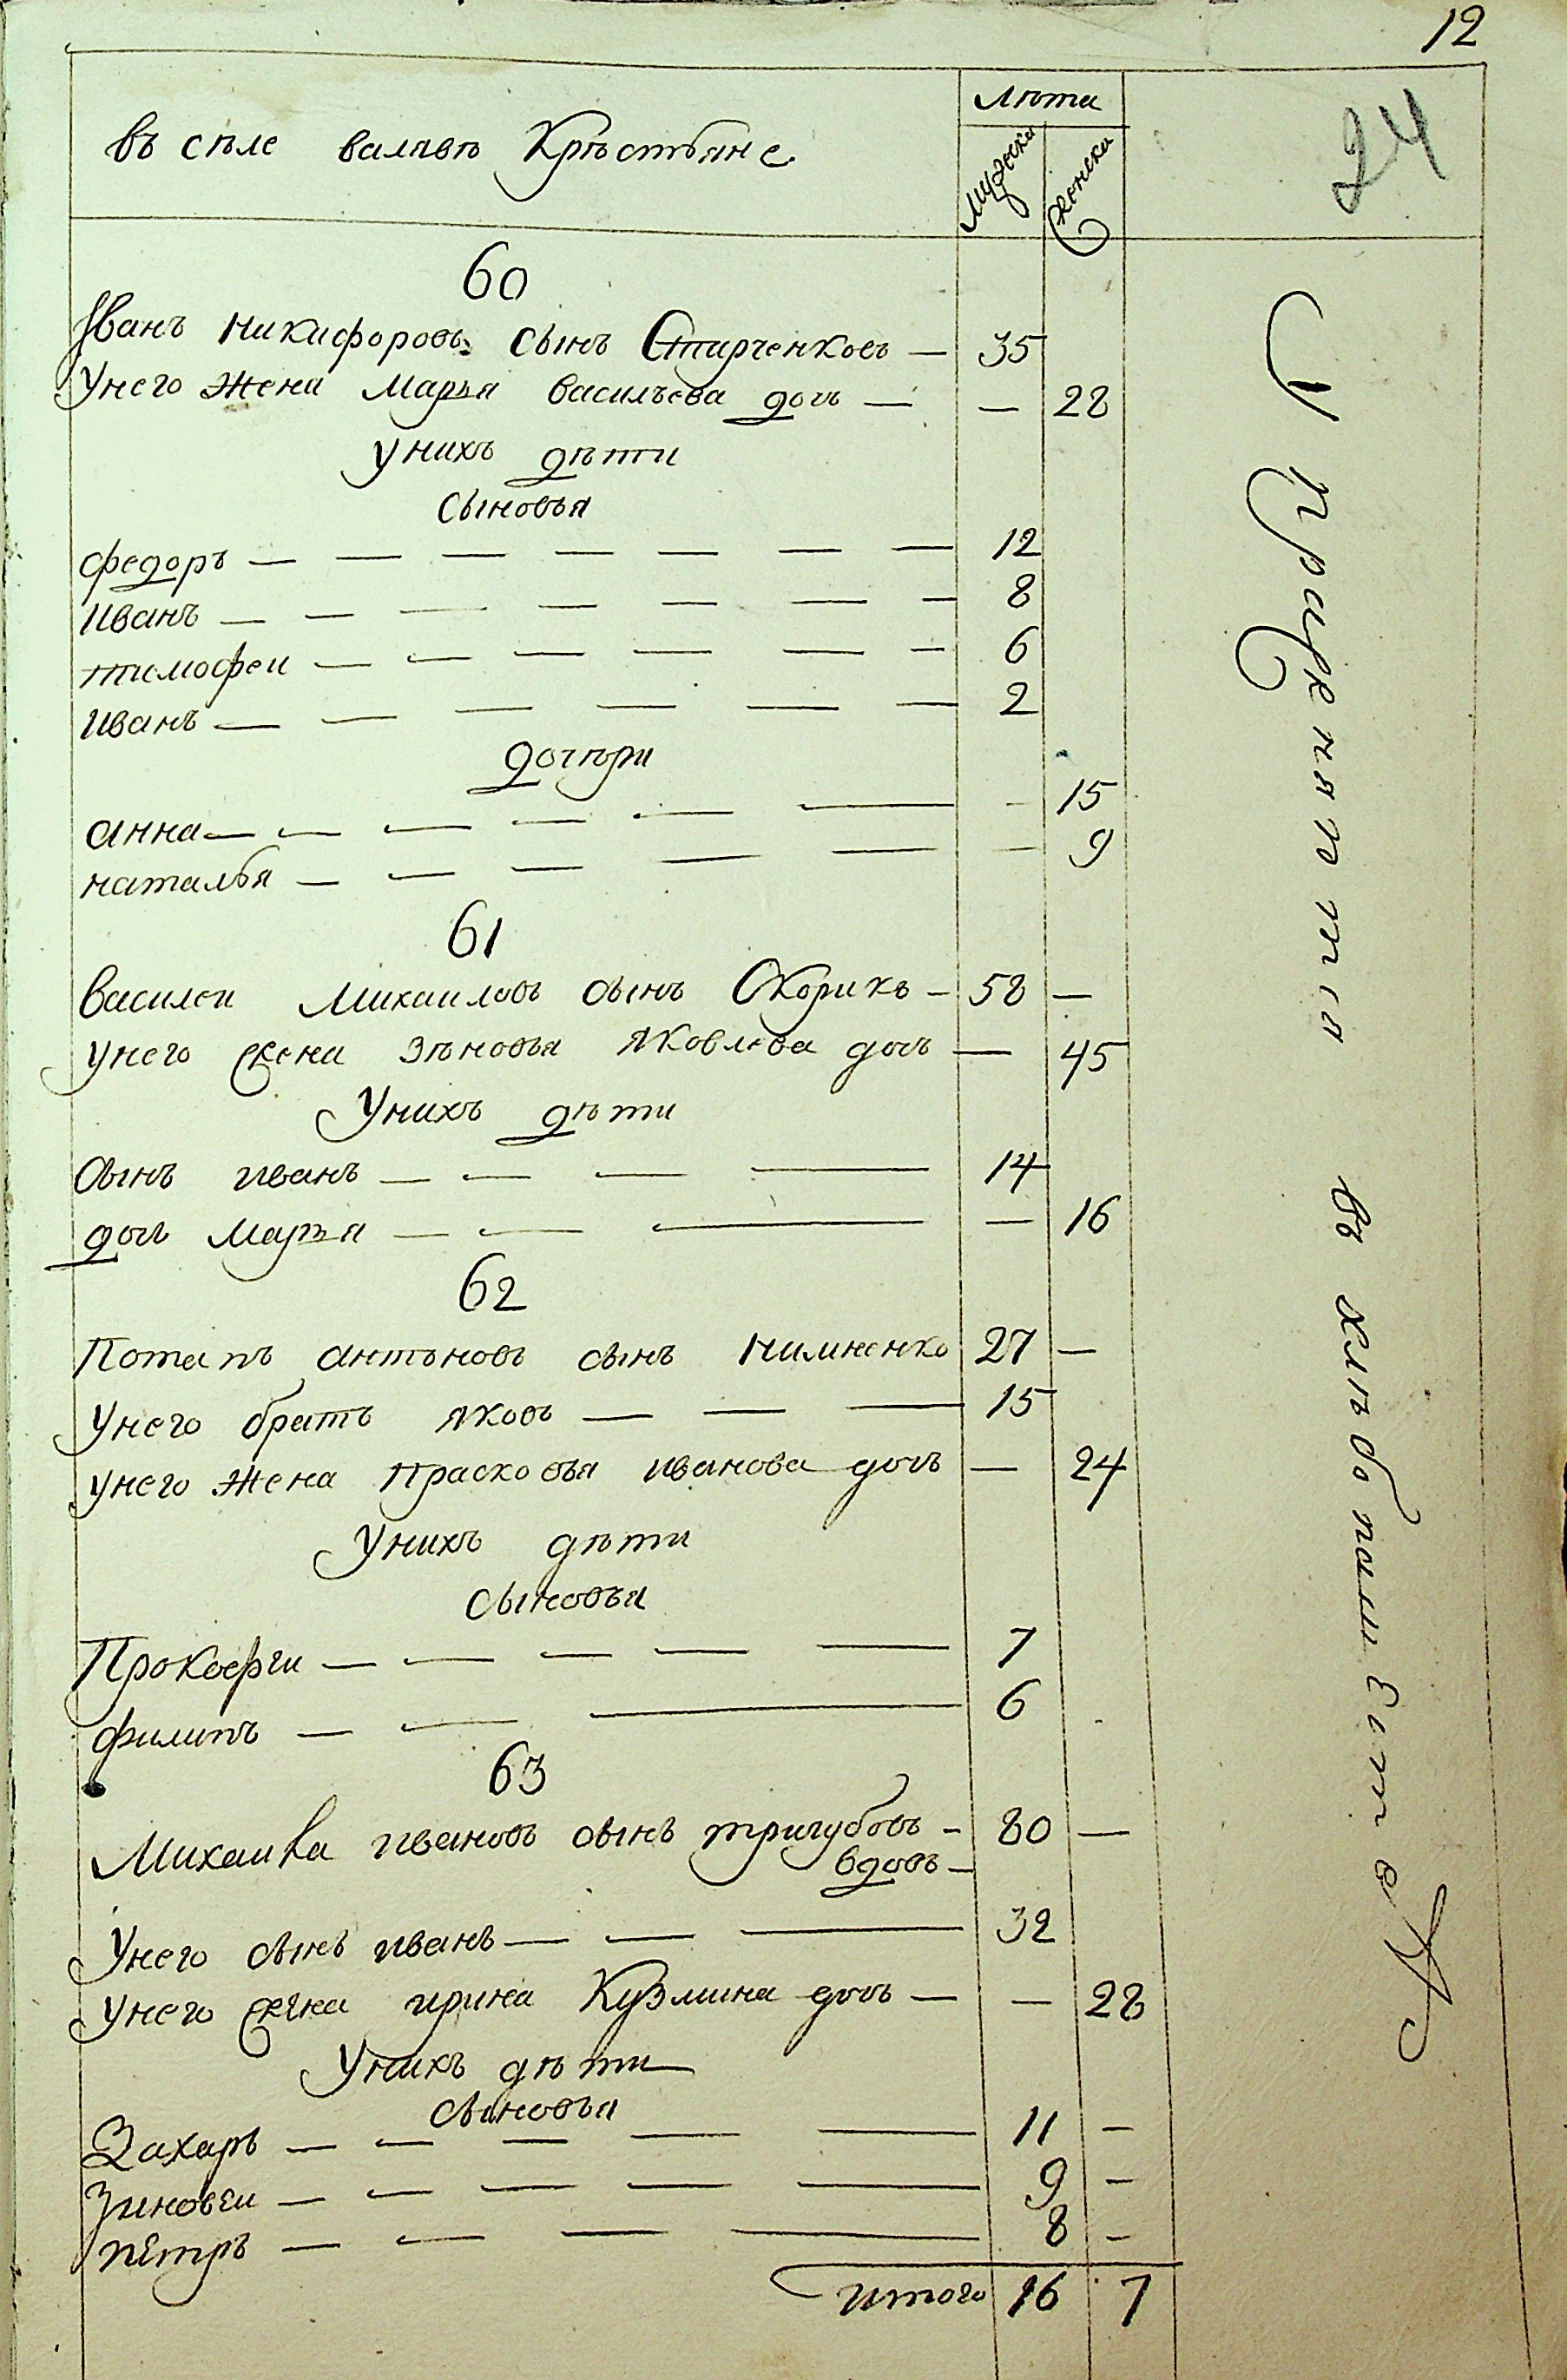 12
24
въ сѣле валѣвѣ Крѣстьяне
Лѣта
Мужеска
женска
60
Иванъ Никифоровъ сынъ Стирченковъ — 35
Унего жена марья васильева дочь — — 28
унихъ дѣти
сыновья
федоръ — — — — — — — 12
иванъ — — — — — — — 8
тимофеи — — — — — — 6
иванъ — — — — — — 2
дочѣри
анна — — — — — — - 15
наталья — — — — — — 9
61
василеи Михаиловъ сынъ Скорикъ — 58 —
унего жена зѣновья яковлева дочь — 45
Унихъ дѣти
сынъ иванъ — — — — 14
дочь марья — — — — 16
62
Потапъ антоновъ сынъ Нимненко 27 —
Унего братъ яковъ — — — 15
унего жена прасковья иванова дочь — 24
Унихъ дѣти
сыновья
Прокофеи — — — — — 7
филипъ — — — 6
63
Михаила ивановъ сынъ тригубовъ — 80 —
вдовъ —
Унего сынъ иванъ — — — 32
Унего жена ирина Кузмина дочь — — 28
Унихъ дѣти
сыновья
Захаръ — — — — — 11 —
Зиновеи — — — — — 9 —
пЕтръ — — — — 8 —
итого 16 7
въ хлѣбопашЕства